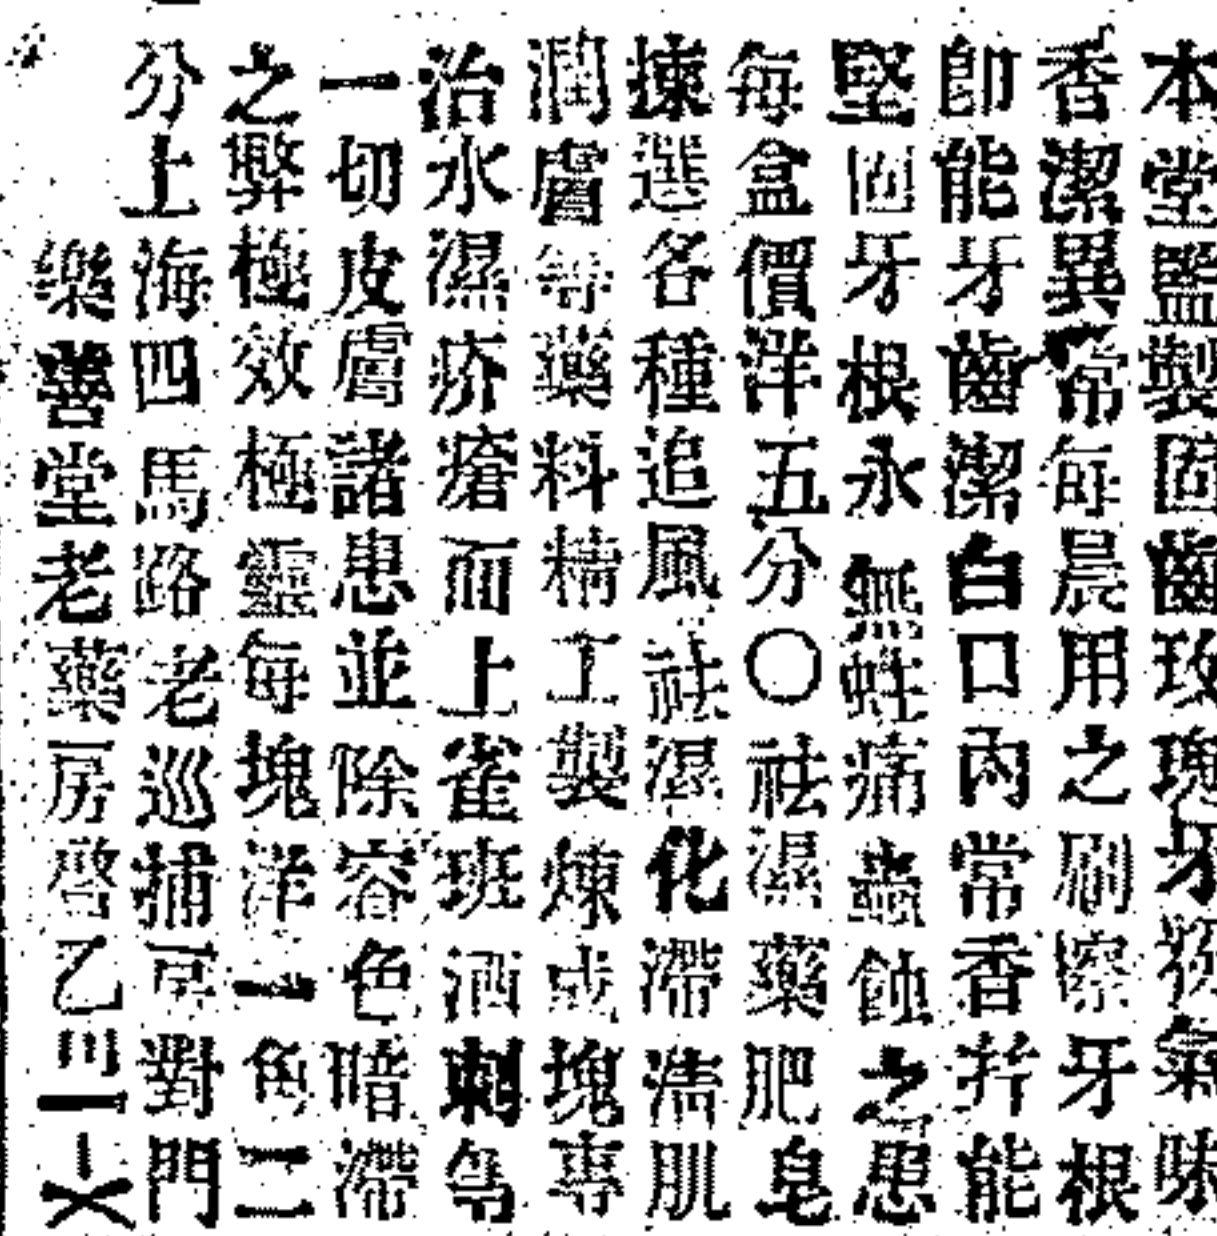 本堂監製固齒玫瑰牙粉氣味
香潔異常每晨用之刷擦牙根
卽能牙齒潔白口內常香并能
堅固牙根永無蛀痛蟲蝕之患
每盒價洋五分〇祛濕藥肥皂
揀選各種追風祛濕化滯淸肌
潤膚等藥料精工製煉成塊專
治水濕疥瘡面上雀班酒刺等
一切皮膚諸患並除容色暗滯
之弊極效極靈每塊洋一角二
分上海四馬路老巡捕房對門
樂善堂老藥房啓乙